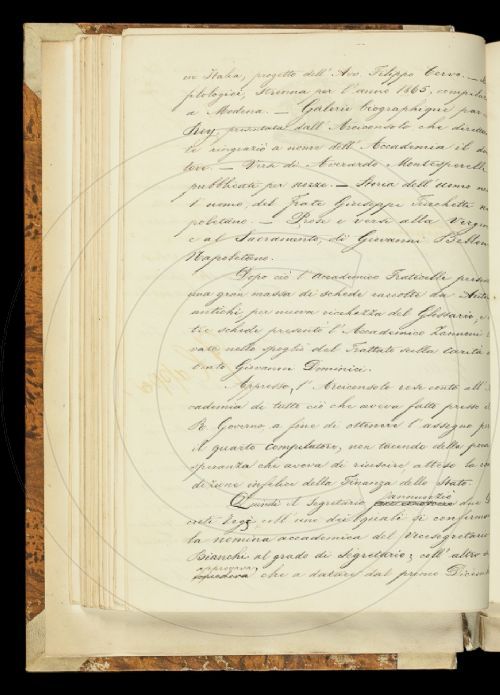 in Italia, progetto dell' Avv. Filippo Cervo. —
filologici, Strenna per l'anno 1865, compilat
a Modena. — Galerie biographique par
Rey, presentata dall' Arciconsolo che dicette
di ringraziò a nome dell' Accademia il do
tore. — Versi di Averardo Montesperelli
pubblicati per nozze. — Storia dell' uomo
l'uomo, del frate Giuseppe Trischetti na
poletano. — Prose e versi alla Vergin
e al Sacramento, di Giovanni Bellon
Napoletano.
Dopo ciò l'Accademico Fraticelli presen
una gran massa di schede raccolte da Auto
antichi per nuova ricchezza del Glossario, e
tre schede presentò l'Accademico Zannoni
vate nello spoglio del Trattato sulla carità
beato Giovanni Dominici.
Appresso, l'Arciconsolo rese conto all'
cademia di tutto ciò che aveva fatto presso
R. Governo a fine di ottenere l'assegno pe
il quarto Compilatore, non tacendo della poca
speranza che aveva di riuscire atteso la co
dizione infelice della Finanza dello Stato.
Quindi il Segretario annunziò due
creti Regj coll' uno dei quali si confermò
la nomina accademica del Vicesegretario
Bianchi al grado di Segretario; coll' altro
approvava, che a datare dal primo Dicemb